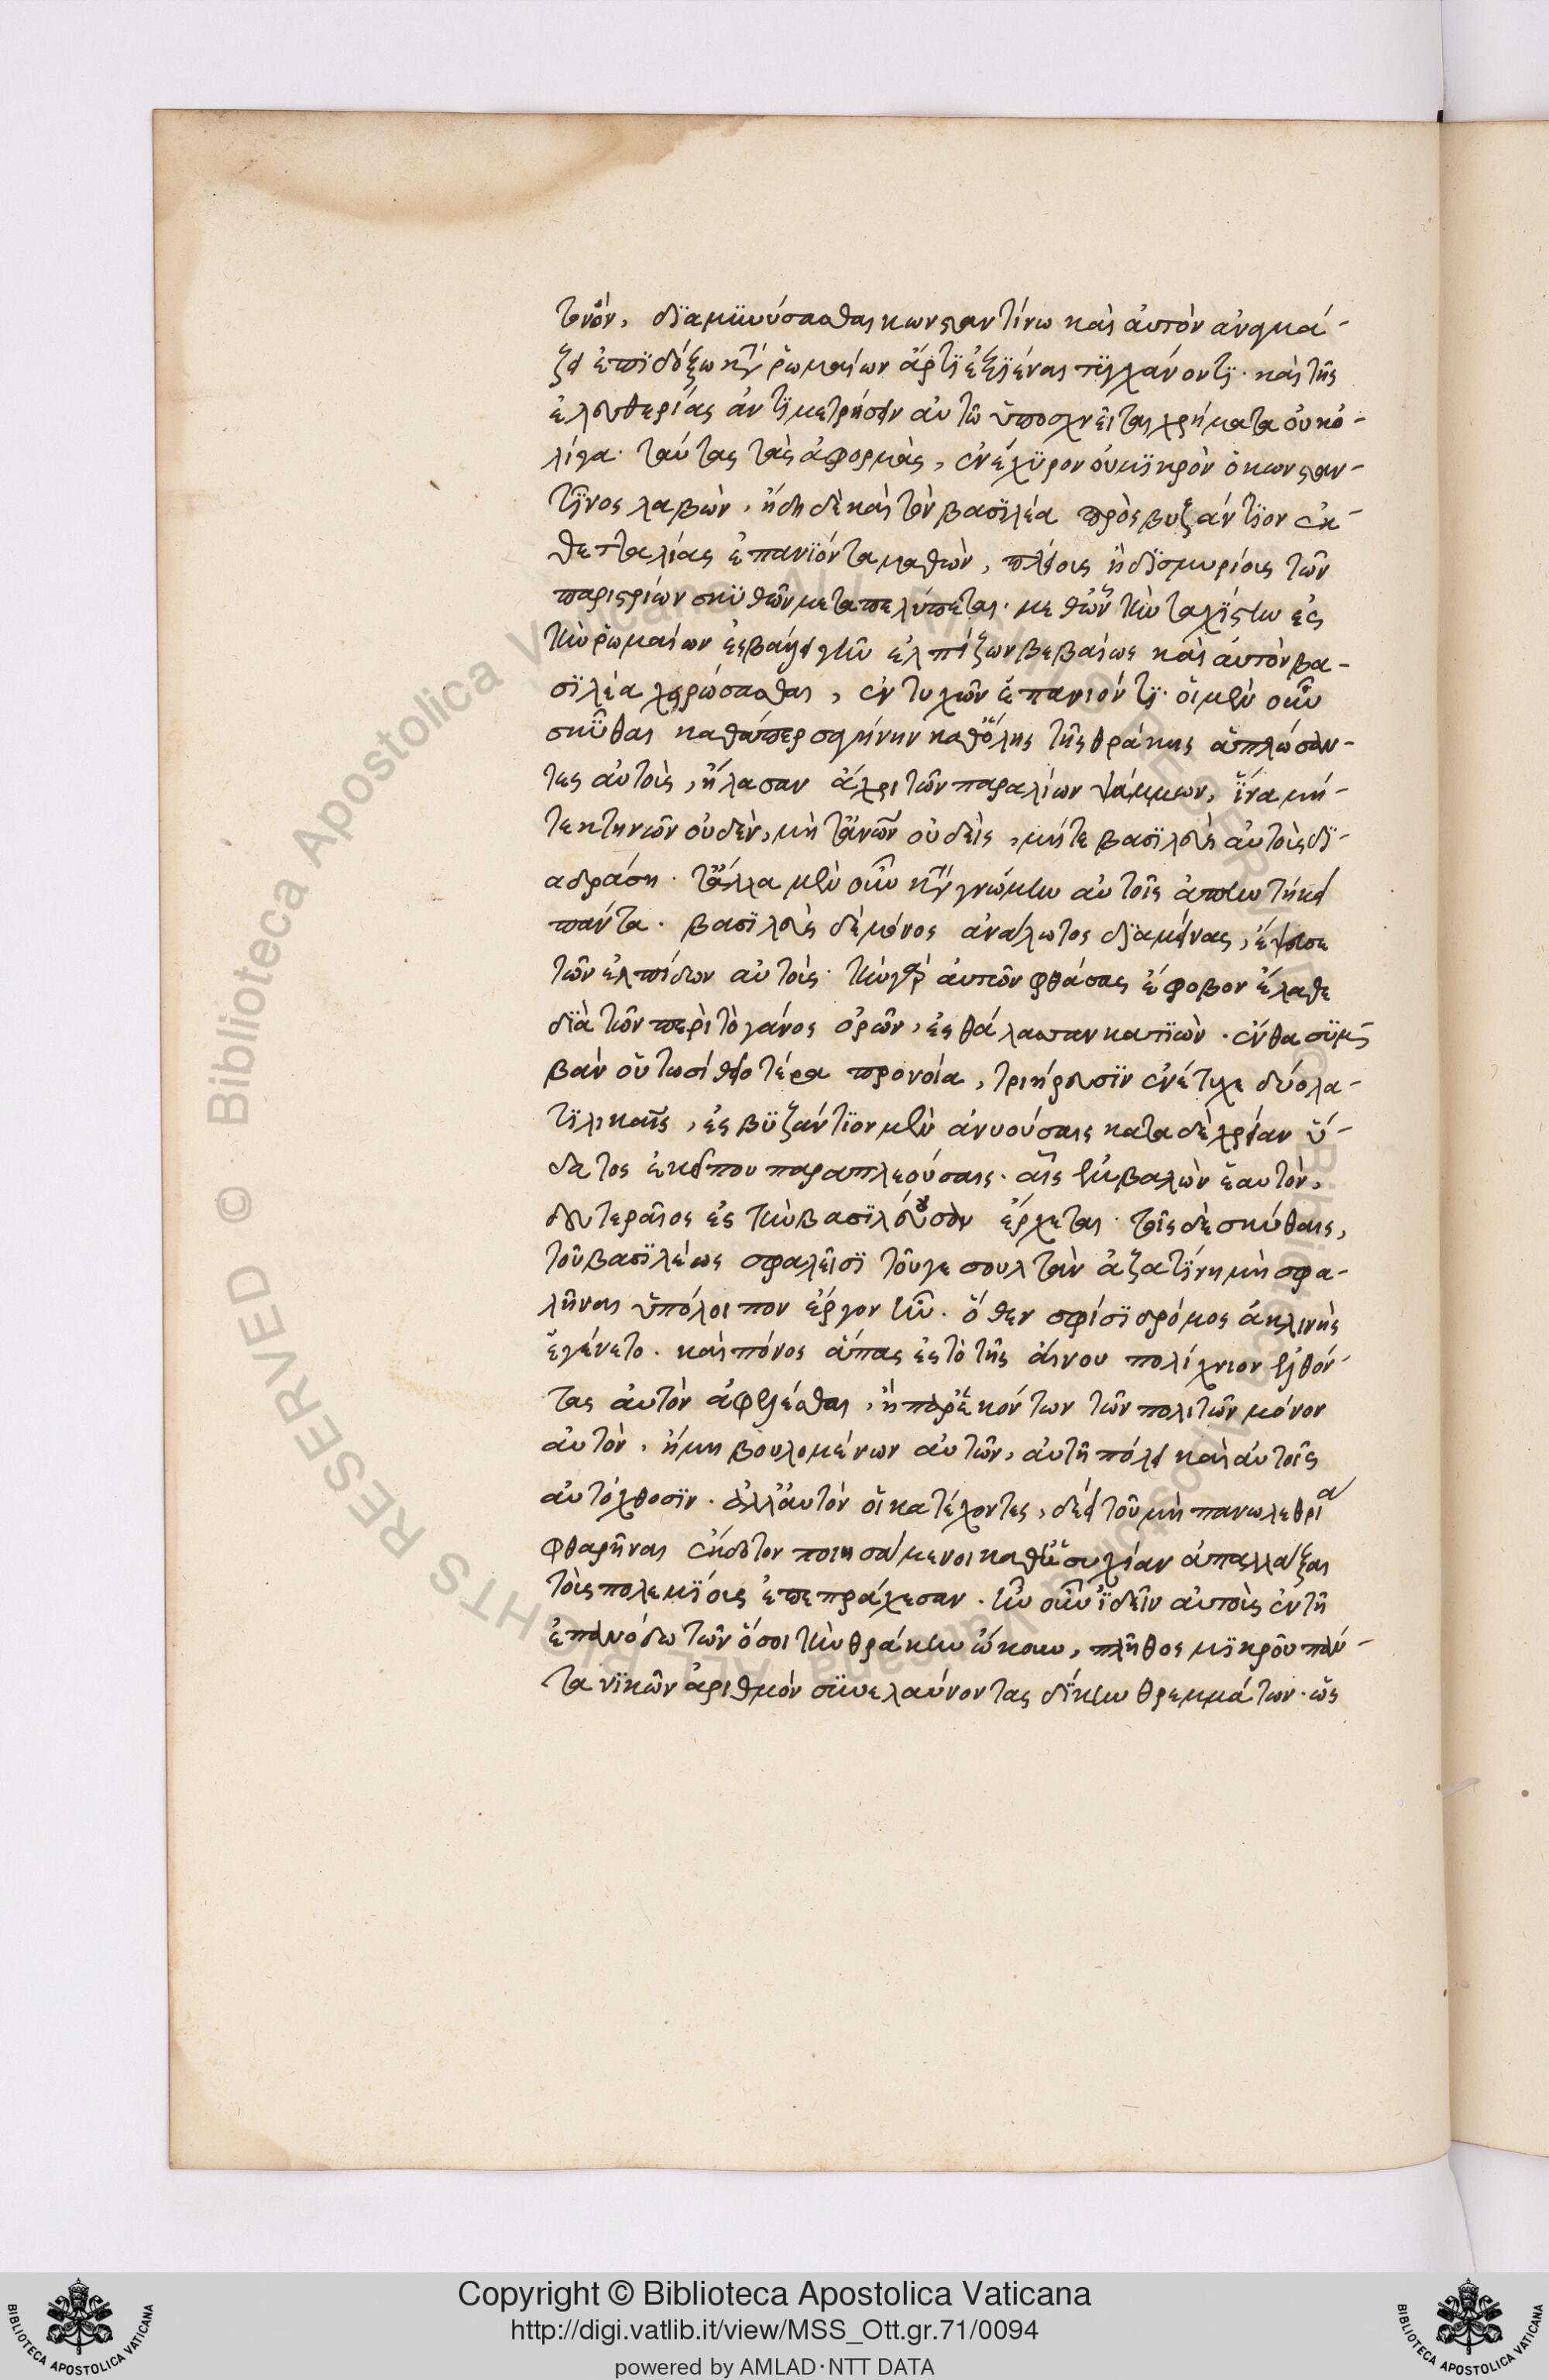 τανὸν, διαμηνύσασθαι κωνσταντίνω καὶ αὐτὸν ἀναγκά-
ζει ἐπιδόξω κατὰ ῥωμαίων ἄρτι ἐξιέναι τυγχάνοντι. καὶ τῆς
ἐλευθερίας ἀντιμετρήσειν αὐτῶ ὑποσχνεῖται χρήματα οὐκ ὀ-
λίγα. ταύτας τὰς ἀφορμὰς, ἐνέχυρον οὐ μικρὸν ὁ κωνσταν-
τῖνος λαβὼν, ἤδη δὲ καὶ τὸν βασιλέα πρὸς βυζάντιον ἐκ
θετταλίας ἐπανιόντα μαθὼν, πλείους ἢ δισμυρίους τῶν
παριστρίων σκυθῶν μεταπέμπεται. μεθ' ὧν τὴν ταχίστην ἐς
τὴν ῥωμαίων ἐσβάλλει γῆν ἐλπίζων βεβαίως καὶ αὐτὸν βα-
σιλέα χειρώσασθαι, ἐντυχὼν ἐπανιόντι. οἱ μὲν οὖν
σκῦθαι καθάπερ σαγήνην καθ' ὅλης τῆς θράκης ἁπλώσαν-
τες αὑτοὺς, ἤλασαν ἄχρι τῶν παραλίων ψάμμων, ἵνα μή-
τε κτηνῶν οὐδὲν, μὴτ' ἀνῶν οὐδεὶς, μήτε βασιλεὺς αὐτοὺς δι-
αδράση. τἄλλα μὲν οὖν κατὰ γνώμην αὐτοῖς ἀπηντήκει
πάντα. βασιλεὺς δὲ μόνος ἀνάλωτος διαμείνας, ἔψευσε
τῶν ἐλπίδων αὐτοὺς. τὴν γὰρ αὐτῶν φθάσας ἔφοδον ἔλαθε
διὰ τῶν περὶ τὸ γάνος ὀρῶν, ἐς θάλασσαν κατιὼν. ἔνθα συμ-
βὰν οὑτωσὶ θειοτέρα προνοία, τριήρεσιν ἐνέτυχε δύο λα-
τινικαῖς, ἐς βυζάντιον μὲν ἀνυούσαις κατα δὲ χρείαν ὕ-
δατος ἐκεῖ που παραπλεούσαις. αἷς ἐμβαλὼν ἑαυτὸν,
δευτεραῖος ἐς τὴν βασιλεύουσαν ἔρχεται. τοῖς δὲ σκύθαις,
τοῦ βασιλέως σφαλεῖσι τοῦ γε σουλτὰν ἀζατίνη μὴ σφα-
λῆναι ὑπόλοιπον ἔργον ἦν. ὅθεν σφίσι δρόμος ἀκλινὴς
ἐγένετο. καὶ πόνος ἅπας ἐς τὸ τῆς αἴνου πολίχνιον ἐλθόν-
τας αὐτὸν ἀφελέσθαι, ἢ παρ' ἑκόντων τῶν πολιτῶν μόνον
αὐτὸν, ἢ μὴ βουλομένων αὐτῶν, αὐτῆ πόλει καὶ αὐτοῖς
αὐτόχθοσιν. ἀλλ' αὐτὸν οἱ κατέχοντες, δέει τοῦ μὴ πανωλεθρία
φθαρῆναι ἔκδοτον ποιησάμενοι καθ' ἡσυχίαν ἀπαλλάξαι
τοὺς πολεμίους ἐπεπράχεσαν. ἦν οὖν ἰδεῖν αὐτοὺς ἐν τῆ
ἐπανόδω τῶν ὅσοι τὴν θράκην ὤκουν, πλῆθος μικροῦ πάν-
τα νικῶν ἀριθμὸν συνελαύνοντας δίκην θρεμμάτων. ὡς
Copyright © Biblioteca Apostolica Vaticana
http://digi.vatlib.it/view/MSS_Ott.gr.71/0094
powered by AMLAD·NTT DATA